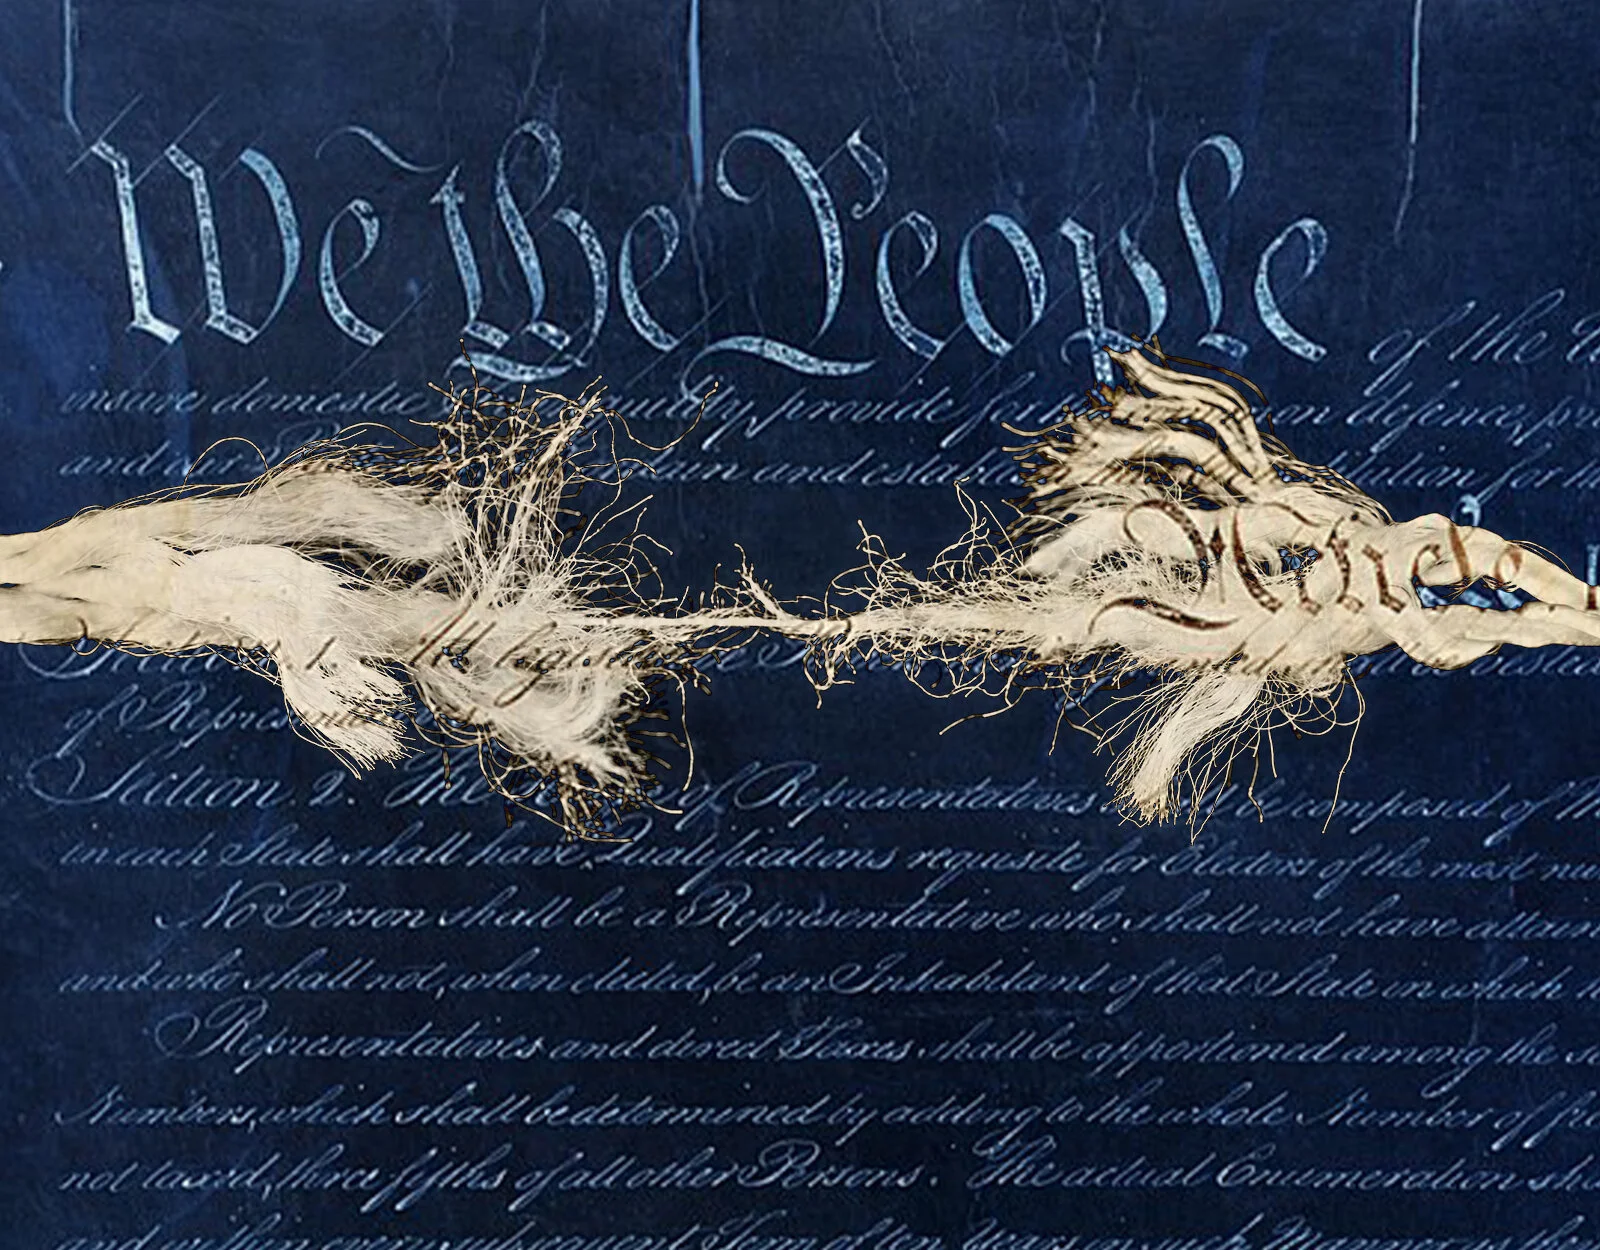 We the People of the
insure domestic provide for defence,
and our and establish for
Article
Section 1. The legis
of Representatives
Section. 2. The of Representatives shall be composed of
in each State shall have Qualifications requisite for Electors of the most nu
No Person shall be a Representative who shall not have attain
and who shall not, when elected, be an Inhabitant of that State in which
Representatives and direct Taxes shall be apportioned among the
Numbers, which shall be determined by adding to the whole Number of
not taxed, three fifths of all other Persons. The actual Enumeration sha
and within every subsequent Term of ten Years, in such Manner as the